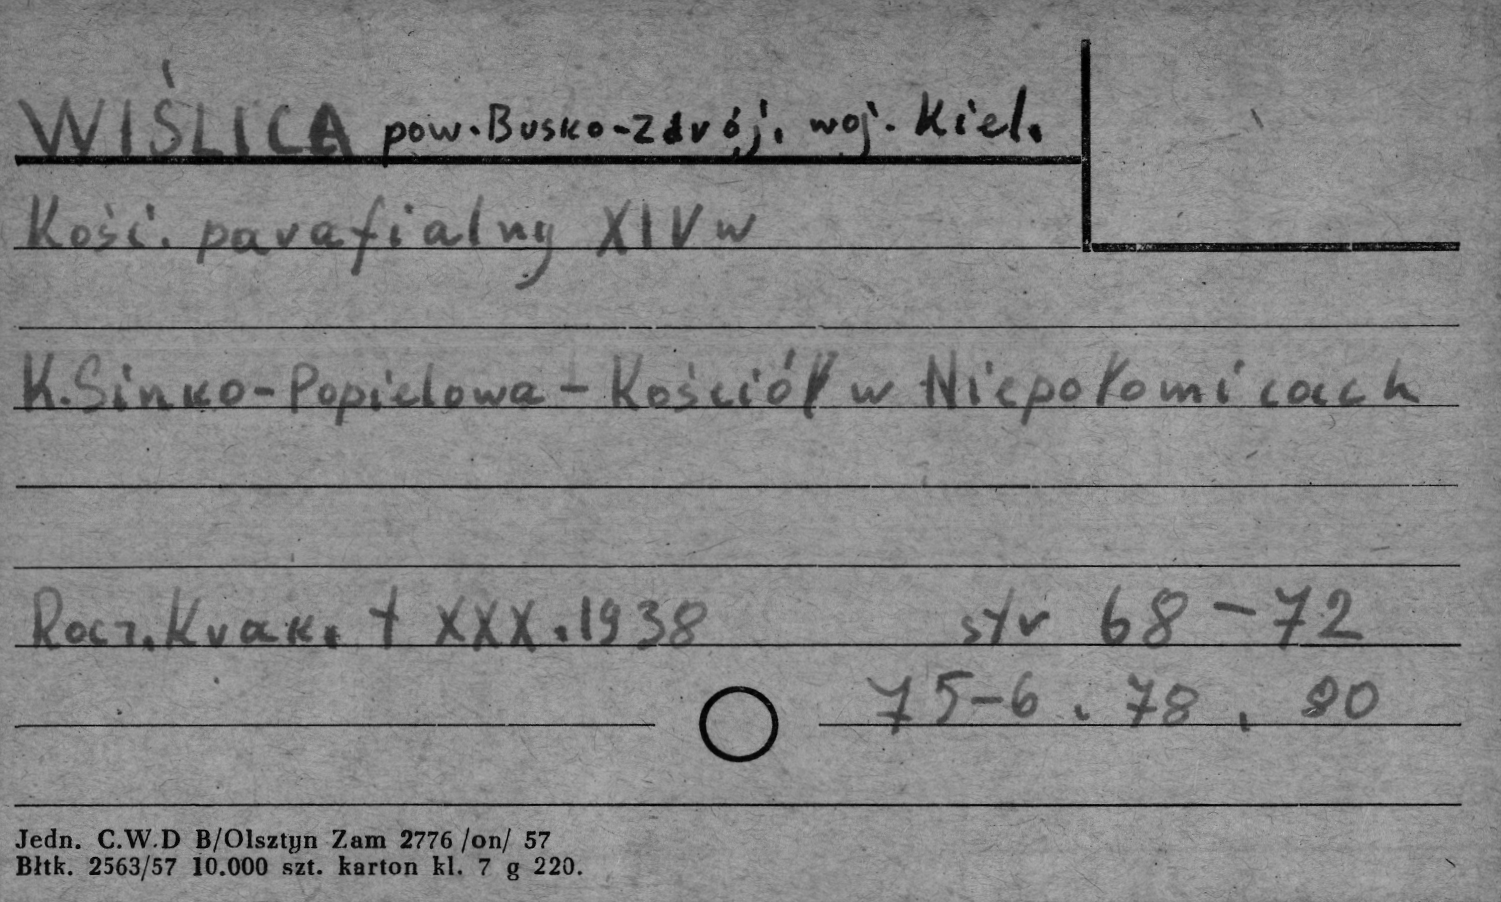 WIŚLICA pow. Busko-Zdrój, woj. Kiel.
Kość. parafialny XIV w
K. Sinko-Popielowa - Kościół w Niepołomicach
Rocz. Krak. t XXX. 1938 str 68-72
75-6, 78, 80
Jedn. C.W.D B/Olsztyn Zam 2776 /on/ 57
Błtk. 2563/57 10.000 szt. karton kl. 7 g 220.